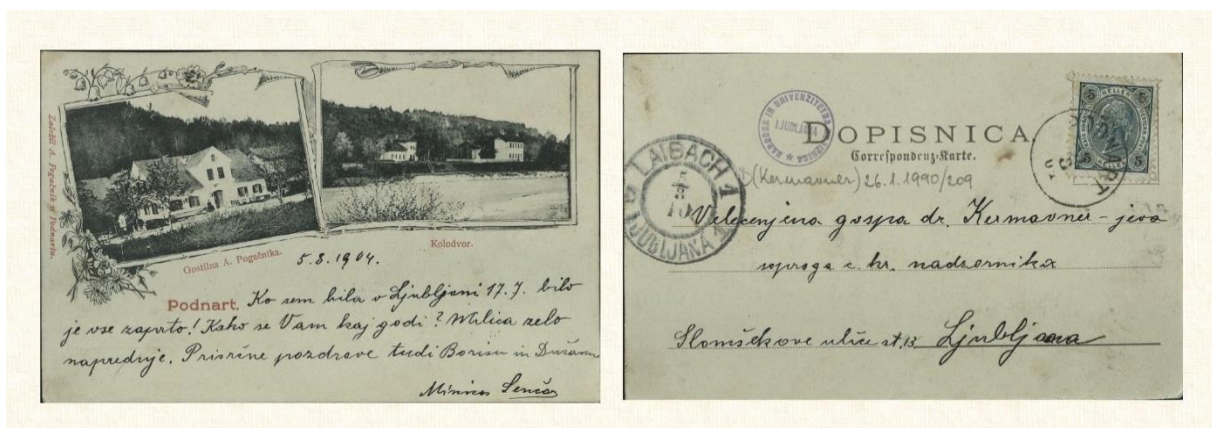 Založil A. Pogačnik v Podnartu.
Gostilna A. Pogačnika.
Kolodvor.
5.8.1904.
Podnart. Ko sem bila v Ljubljani 17.7. bilo
je vse zaprto! Kako se Vam kaj godi? Milica zelo
napreduje. Prisrčne pozdrave tudi Borisu in Dušanu
Minica
NARODNA IN UNIVERZITETNA KNJIŽNICA
LJUBLJANA
DOPISNICA
Correspondenz-Karte.
5 HELLER 5
5 5
PODNART
LAIBACH 1
LJUBLJANA 1
(Kermavner) 26.1.1990/209
Velecenjena gospa dr. Kermavner-jeva
soproga c. kr. nadzornika
Slomškove ulice št. 13 Ljubljana